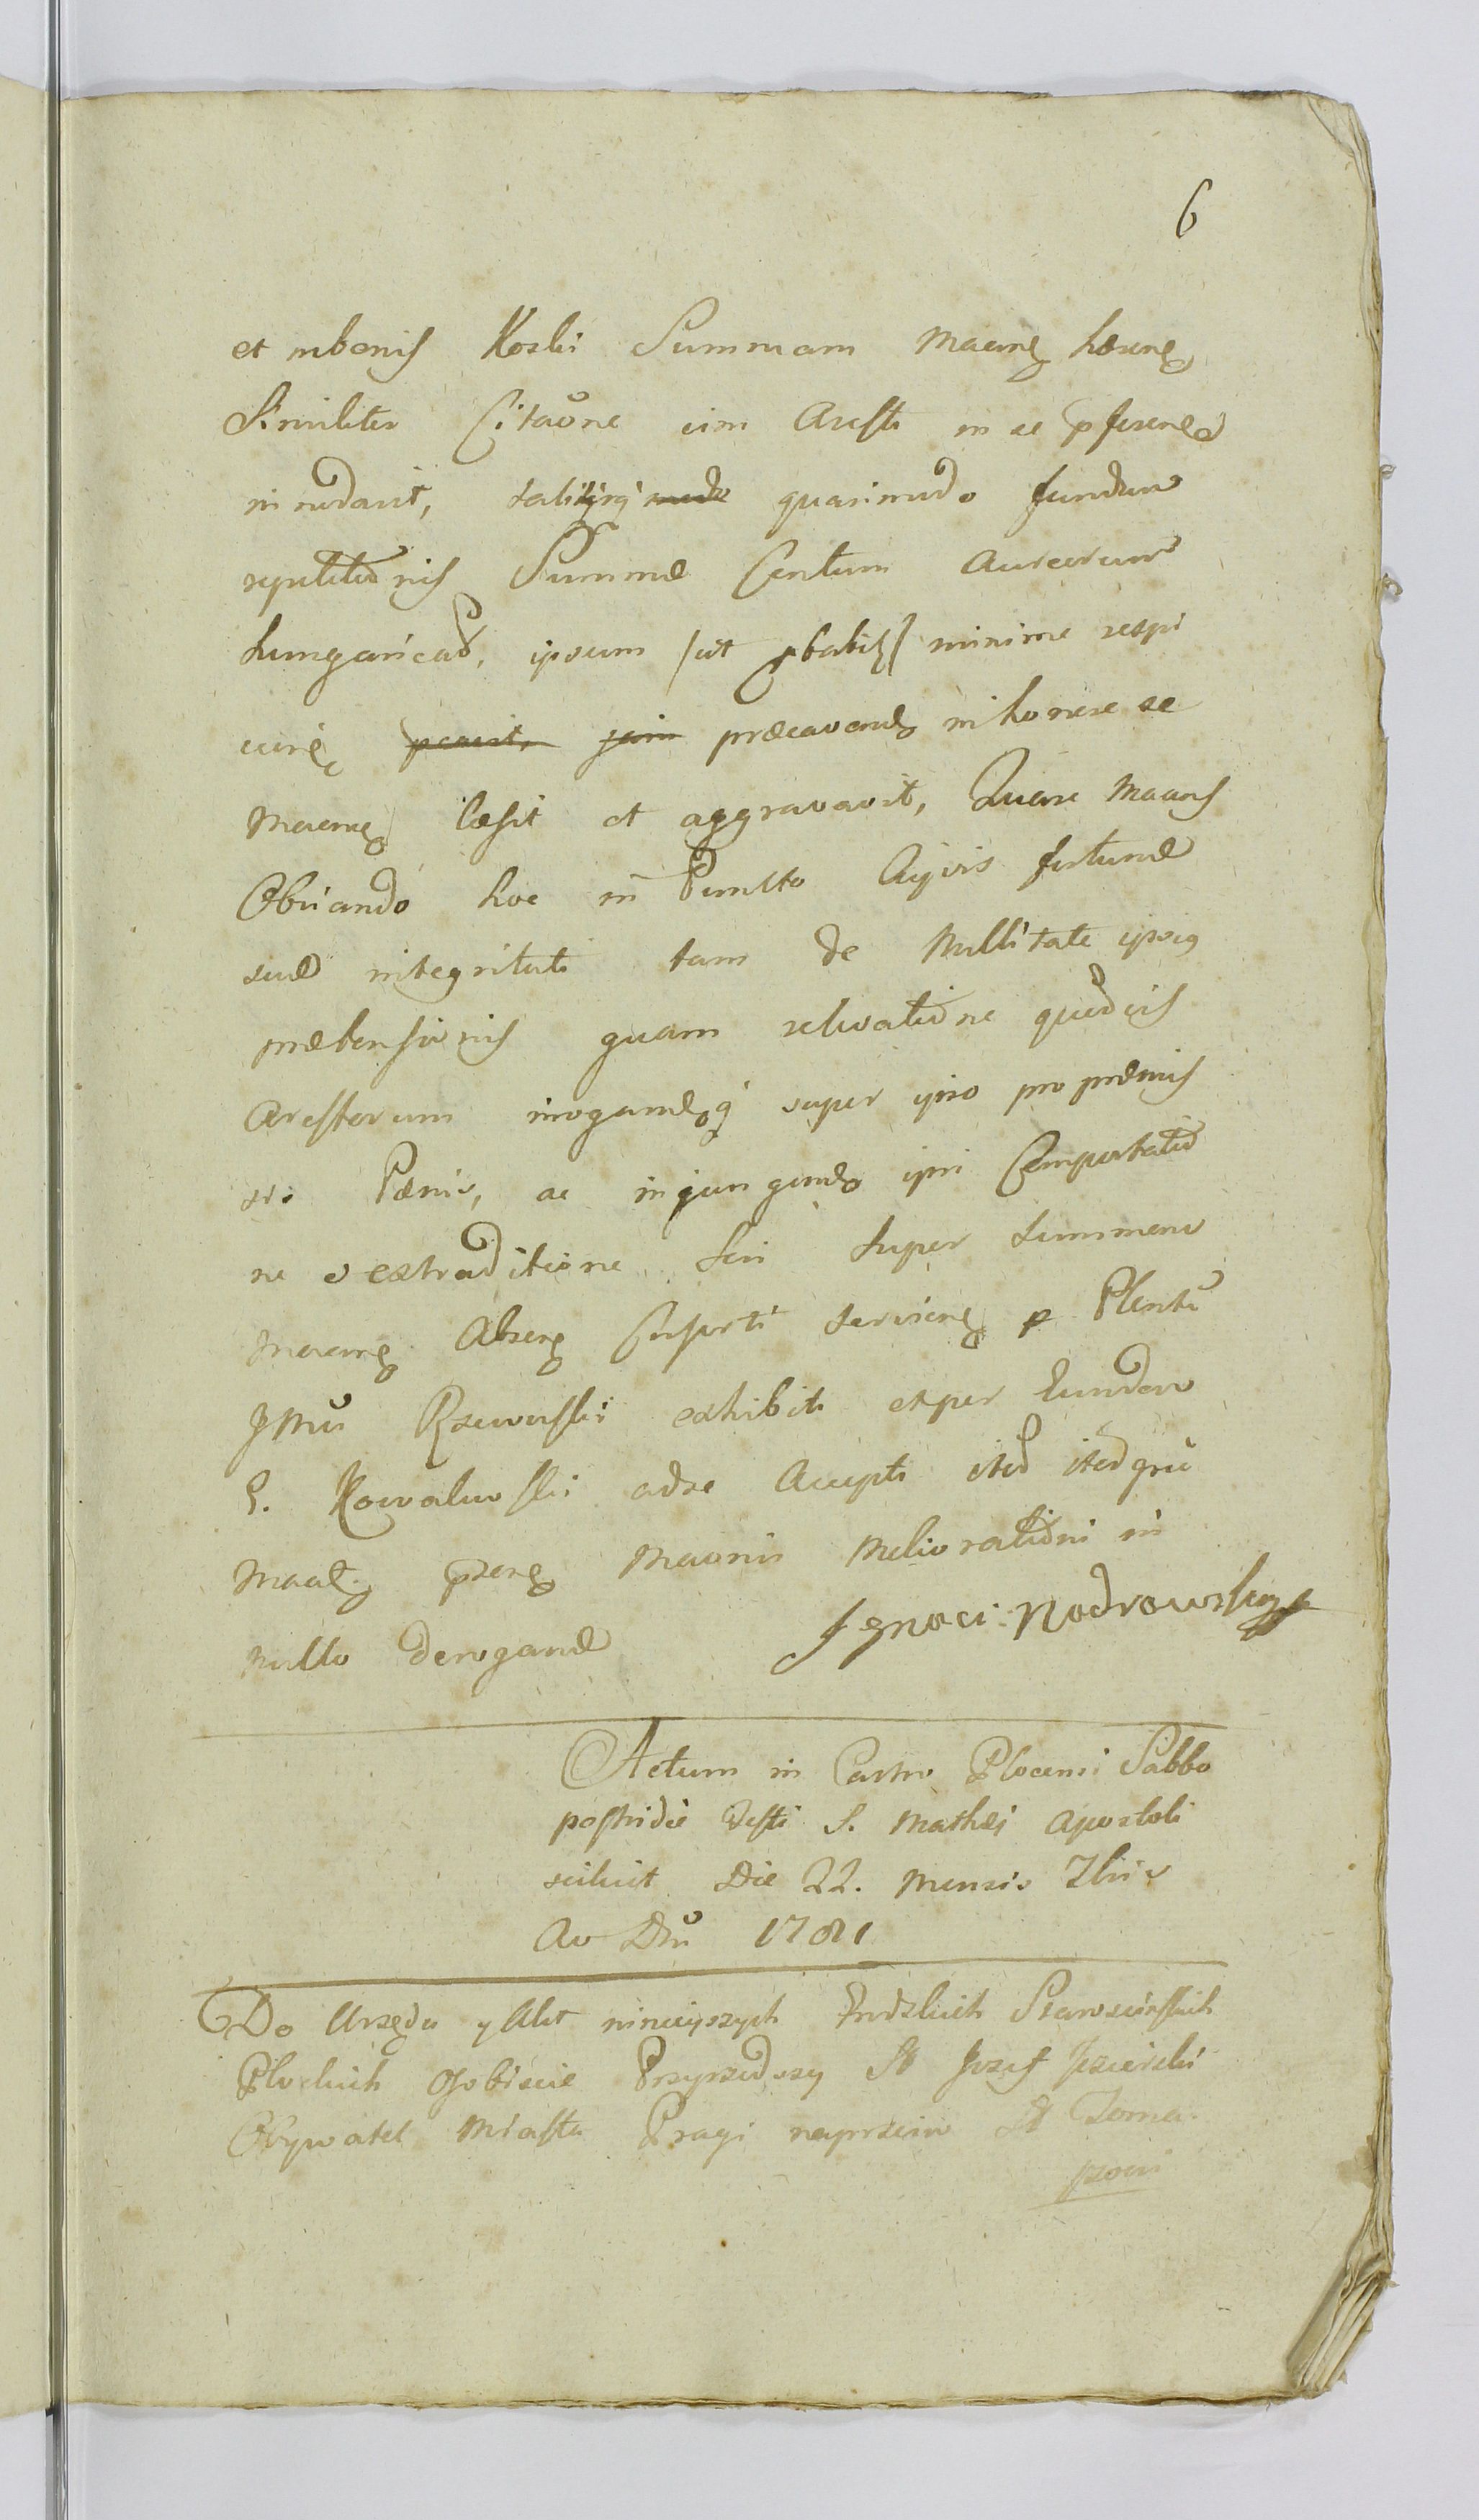 6
et in bonis Koski Summam Maane haerene
Similiter Citaõne vim Aresti in se pferene
innodavit, talitqz quasimodo fundum
repetitionis Summae Centum Aureorum
hungaricat, ipsum /: ut pbabit :/ minime respi
ciene praecavendo in honore se
Maane laesit et aggravavit, Quare Maans
Obviando hoc in Puncto Cujvis fortunae
suae integritati tam de Nullitate ipsius
praetensionis quam relevatione quorvis
Arestorum irrogandoq super ipso pro praemis
sis Paenis, ac injungendo ipsi Comportatio
ne & extraditione Sui super summam
Maane Absene serviene p
Rzewuski exhibiti et per Eundem
G. Kowalewski ad se Accepti
psene Maonis Melioratione in
nullo derogando
Ignaci Nodrowsky
Actum in Castro Plocensi Sabbo
postridie Festi S. Mathaei Apostoli
scilicet Die 22. Mensis 7bris
Ao Dni 1781
Do Urzędu y Akt ninieyszych Grodzkich Starościńskich
Płockich Osobiście Przyszedszy St Jozef
Obywatel Miasta Pragi naprzeciw St Toma
szowi